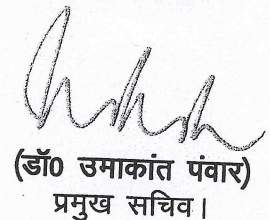 (डॉ0 उमाकांत पंवार)
प्रमुख सचिव।